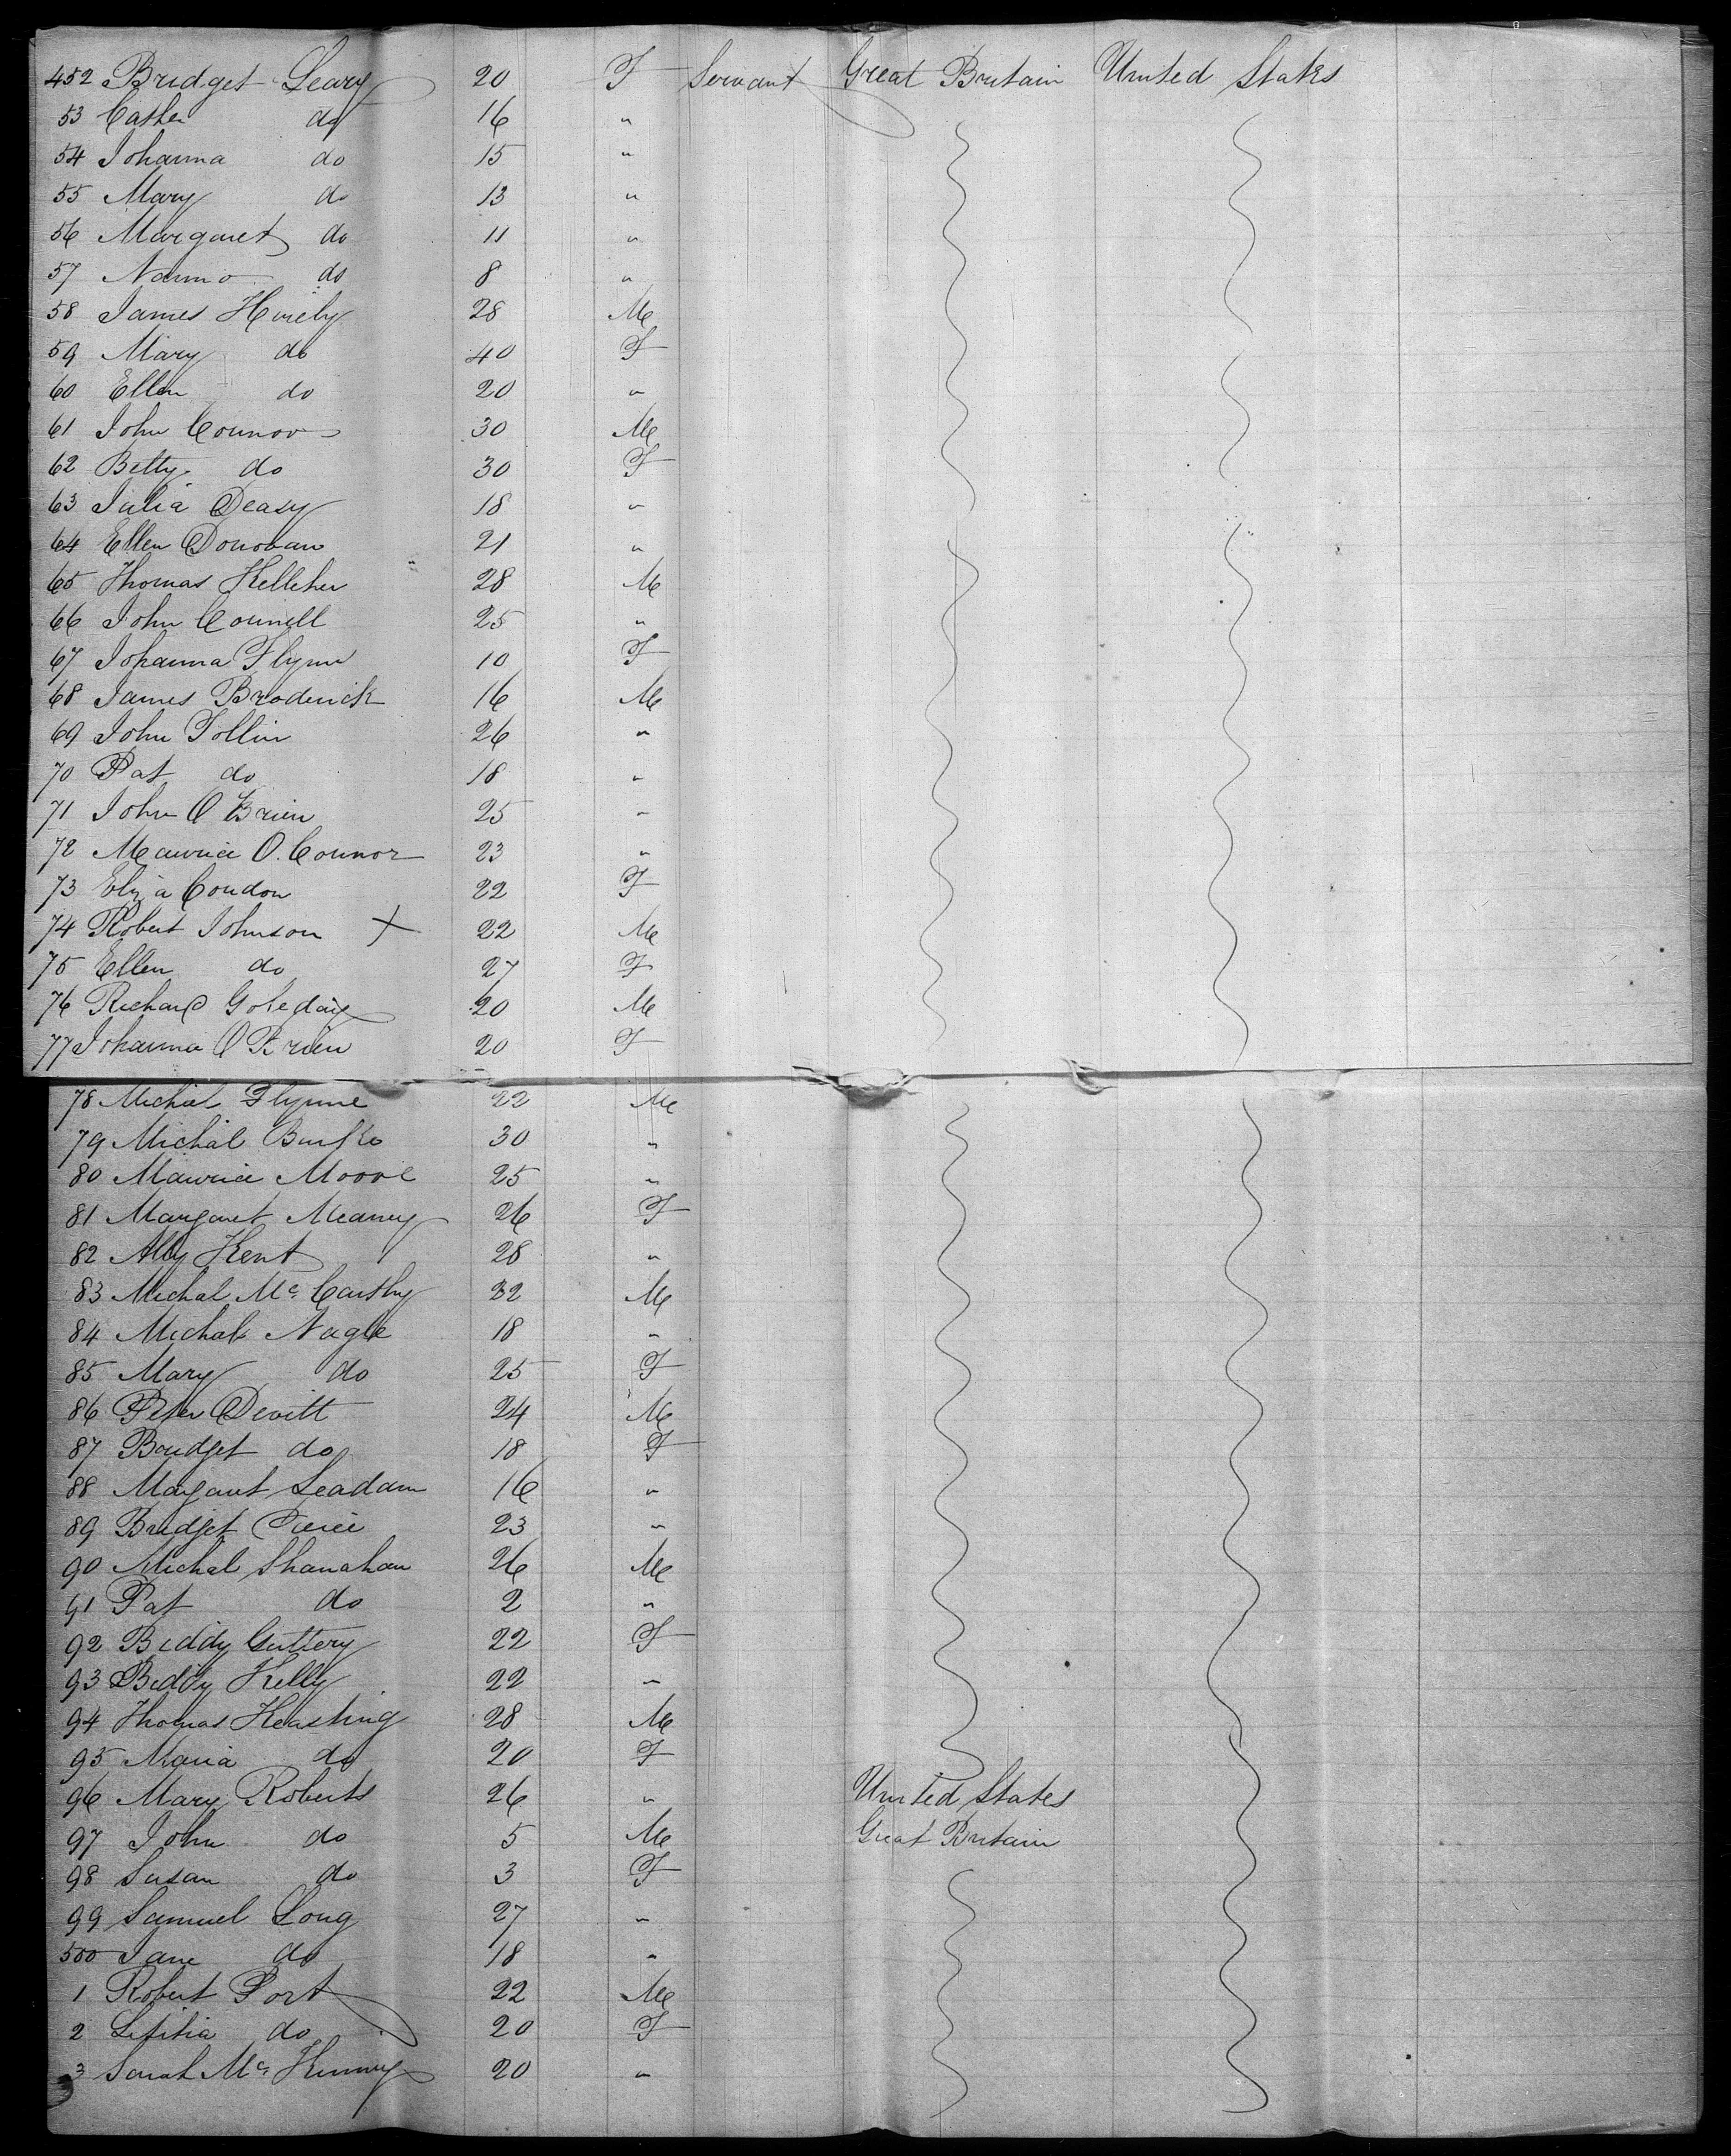 452 Bridget Leary 20 F Servant Great Britain United States
53 Cather do 16 "
54 Johanna do 15 "
55 Mary do 13 "
56 Margaret do 11 "
57 Nanno do 8 "
58 James 28 M
59 Mary do 40 F
60 Ellen do 20 "
61 John Connor 30 M
62 Betty do 30 F
63 Julia Deasy 18 "
64 Ellen Donovan 21 "
65 Thomas Kelleher 28 M
66 John Connell 25 "
67 Johanna Flynn 10 F
68 James Broderick 16 M
69 John Follin 26 "
70 Pat do 18 "
71 John O Brien 25 "
72 Maurice O. Connor 23 "
73 Eliza Condon 22 F
74 Robert Johnson X 22 M
75 Ellen do 27 F
76 Richard 20 M
77 Johanna O Brien 20 F
78 Michal Flynne 22 M
79 Michal Burke 30 "
80 Maurice Moore 25 "
81 Margaret Meaney 26 F
82 Ally Kent 28 "
83 Michal Mc Carthy 32 M
84 Michal Nagle 18 "
85 Mary do 25 F
86 Peter Devitt 24 M
87 Bridget do 18 F
88 Margaret Leadam 16 "
89 Bridget Pierce 23 "
90 Michal Shanahan 26 M
91 Pat do 2 "
92 Biddy Guttery 22 F
93 Biddy Kelly 22 "
94 Thomas Keashing 28 M
95 Maria do 20 F
96 Mary Roberts 26 " United States
97 John do 5 M Great Britain
98 Susan do 3 F
99 Samuel Long 27 "
500 Jane do 18 "
1 Robert Port 22 M
2 Letitia do 20 F
3 Sarah Mc Kinney 20 "